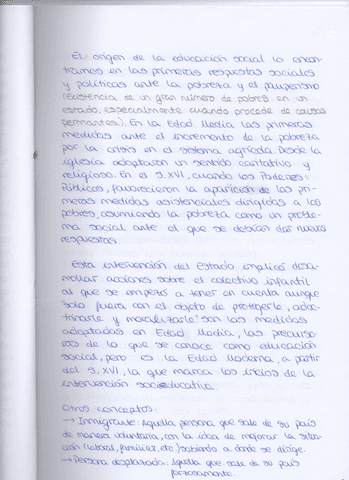 El origen de la educación social lo encon-
tramos en las primeras respuestas sociales
y políticas ante la pobreza y el pauperismo
(existencia de un gran número de pobres en un
estado, especialmente cuando procede de causas
permanentes). En la Edad Media las primeras
medidas ante el incremento de la pobreza
por la crisis en el sistema agrícola. Desde la
iglesia adoptaron un sentido caritativo y
religioso. En el S.XVI, cuando los Poderes
Públicos, favorecieron la aparición de las pri-
meras medidas asistenciales dirigidas a los
pobres, asumiendo la pobreza como un proble-
ma social ante el que se debían dar nuevas
respuestas.
Esta intervención del Estado implicó desa-
rrollar acciones sobre el colectivo infantil
al que se empezó a tener en cuenta aunque
solo fuera con el objeto de protegerle, adoc-
trinarle y moralizarle son las medidas
adoptadas en Edad Media, las precurso-
ras de lo que se conoce como educación
social, pero es la Edad Moderna, a partir
del S.XVI, la que marca los inicios de la
intervención socioeducativa.
Otros conceptos:
→ Inmigrante: Aquella persona que sale de su país
de manera voluntaria, con la idea de mejorar la situa-
ción (laboral, familiar, etc) sabiendo a donde se dirige.
→ Persona desplazada: Aquella que sale de su país
forzosamente.